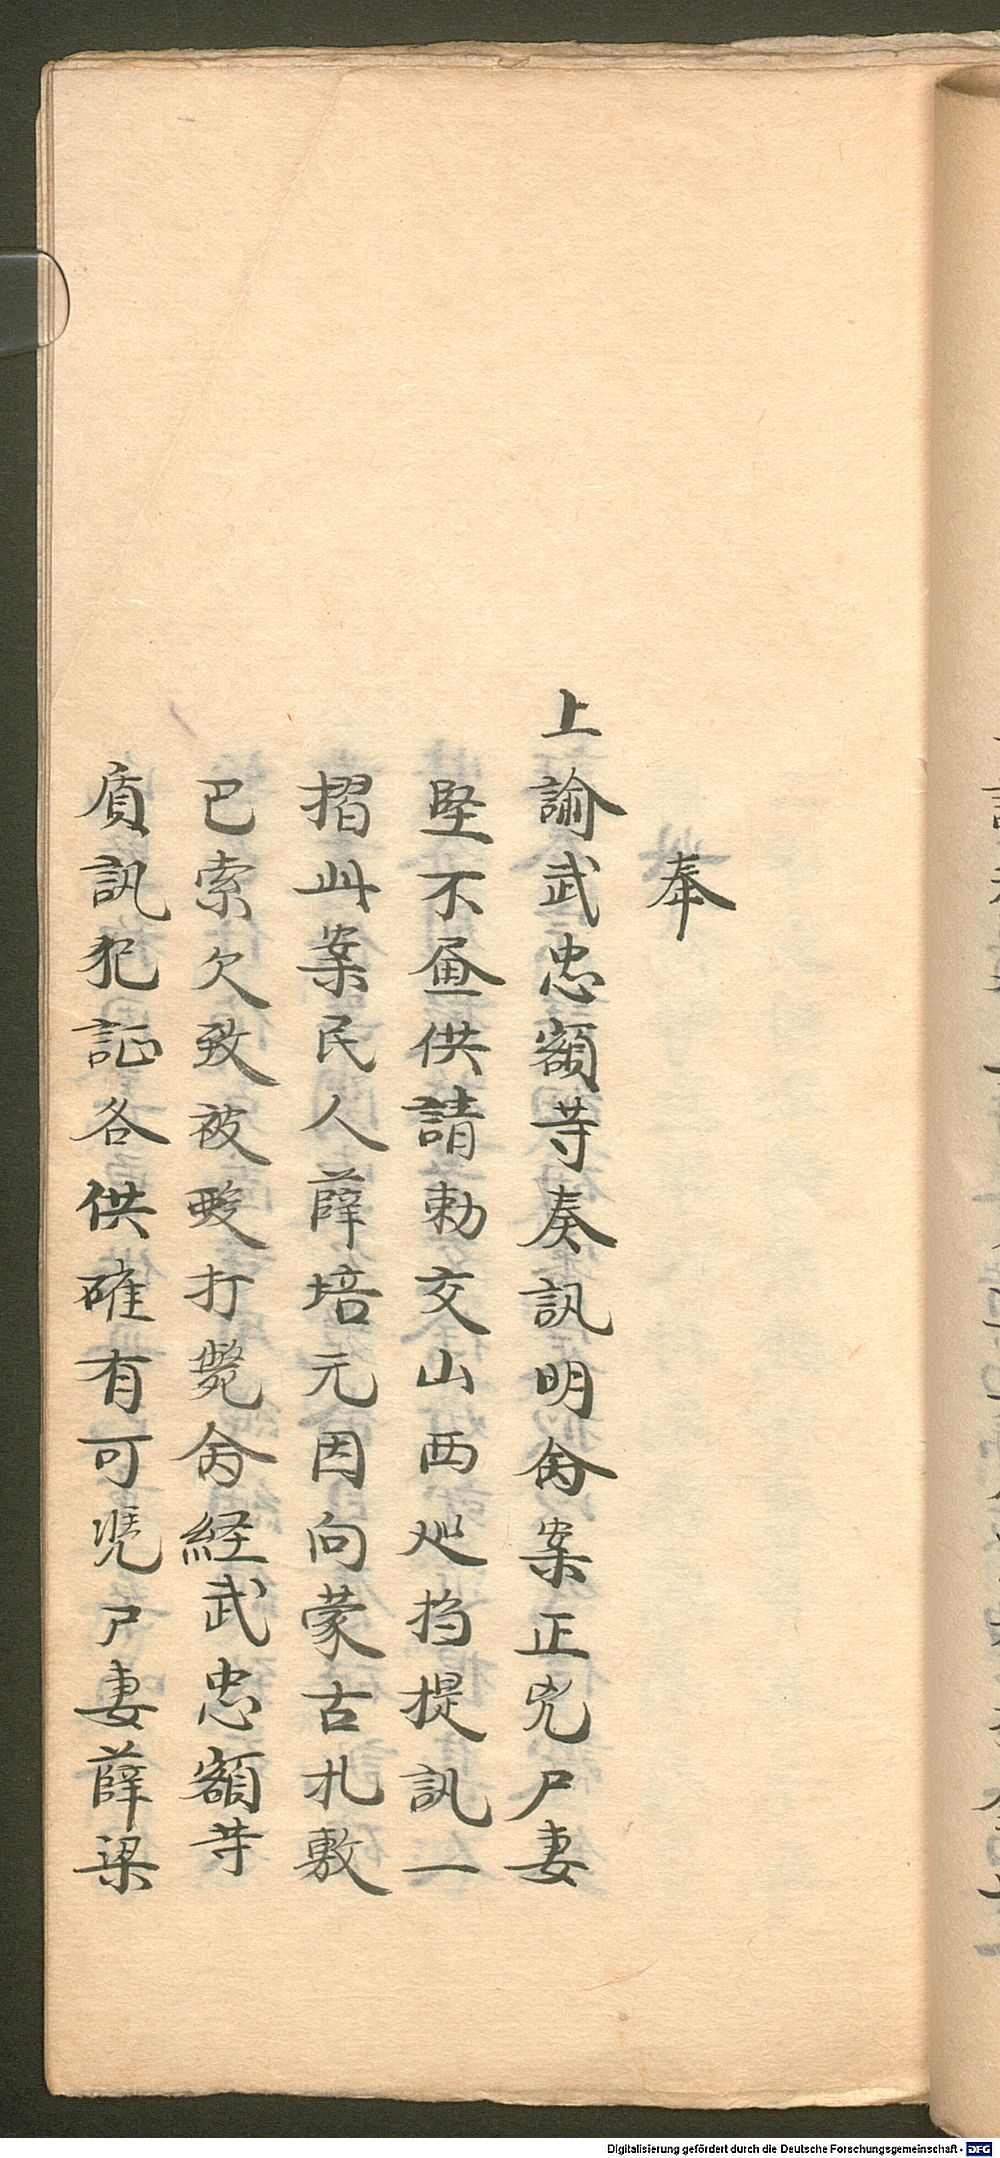 奉
上諭武忠額䓁奏訊明命案正兇尸妻
堅不畫供請勅交山西巡撫提訊一
摺此案民人薛培元因向蒙古札敷
巴索欠致被毆打斃命経武忠額䓁
質訊犯証各供確有可憑尸妻薛梁
Digitalisierung gefördert durch die Deutsche Forschungsgemeinschaft - DFG